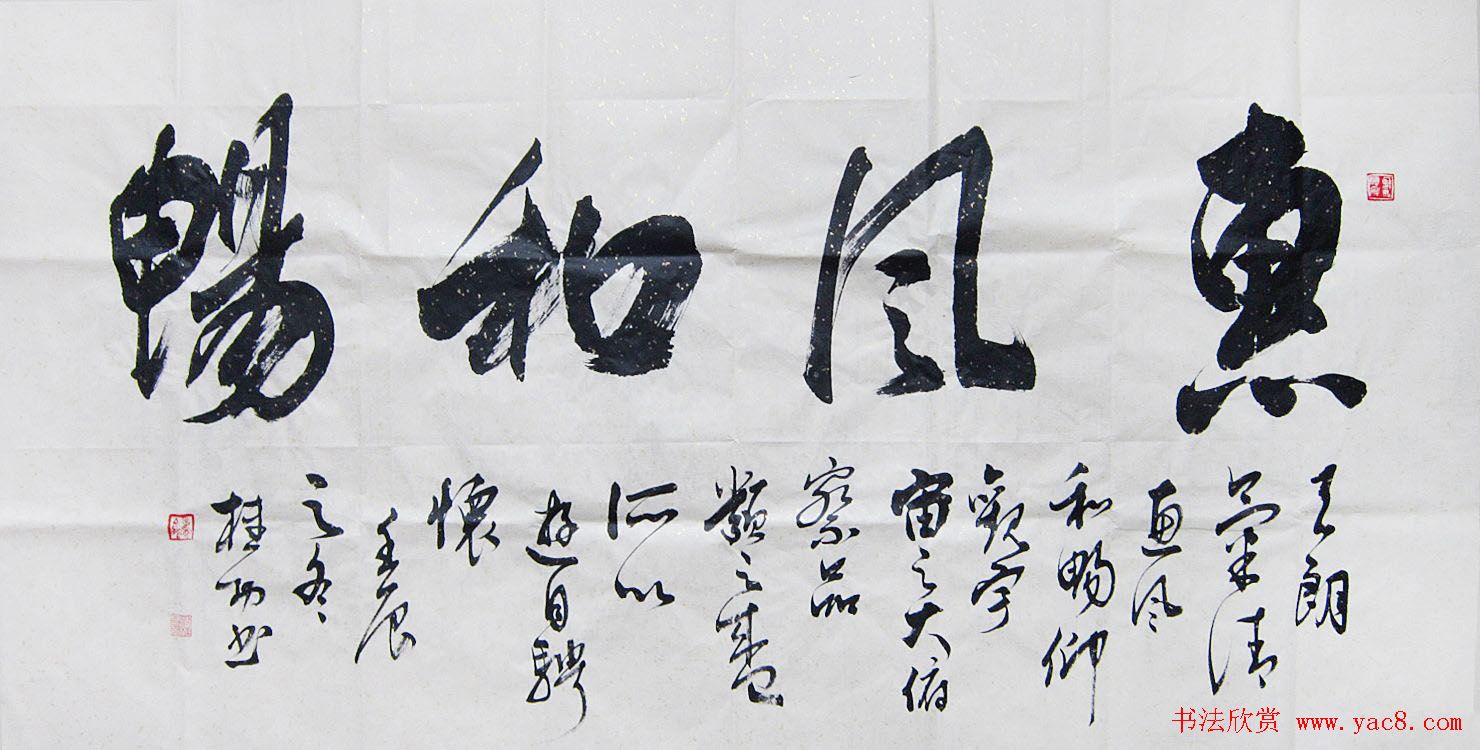 惠风和暢
天朗
氣清
惠风
和暢仰
觀宇
宙之大俯
察品
類之盛
所以
遊目騁
懷
壬辰
之冬
桂书
书法欣赏 www.yac8.com